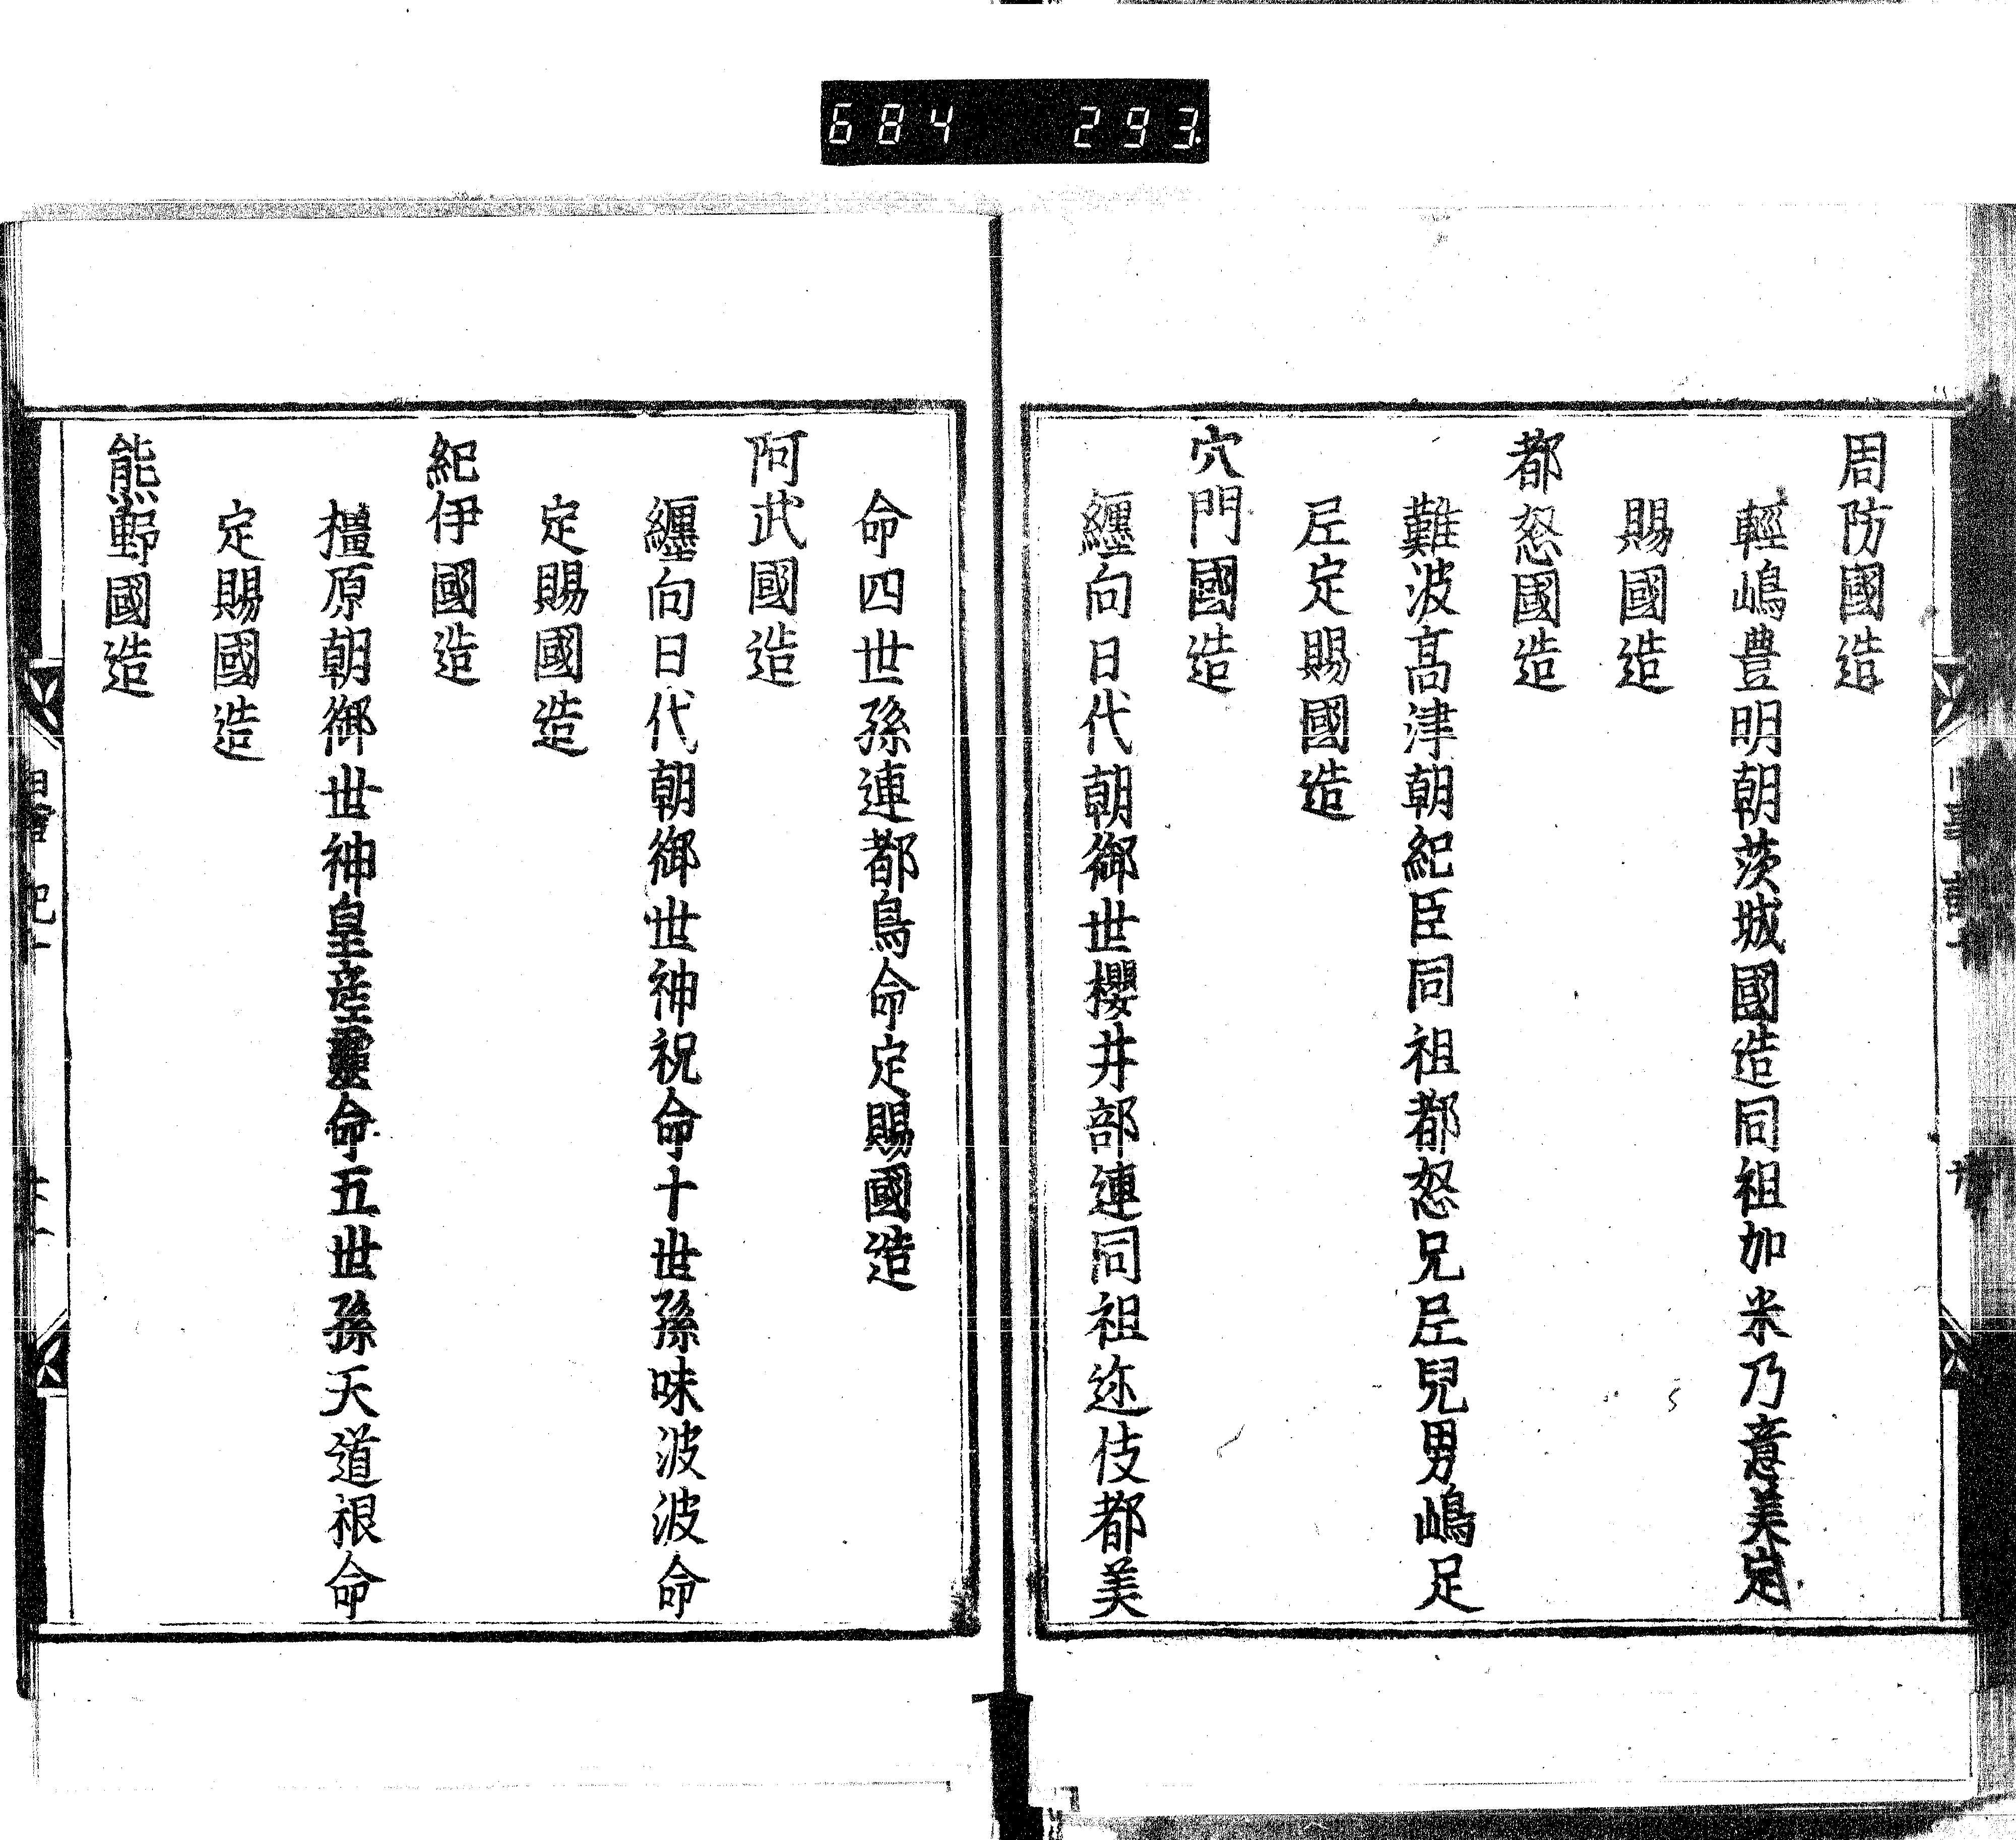 684 293
周防國造
輕嶋豊明朝茨城國造同祖加米乃意美定
賜國造
都怒國造
難波髙津朝紀臣同祖都怒兄㞐兒男嶋足
㞐定賜國造
穴門國造
纏向日代朝御世櫻井部連同祖迩伎都美
命四世孫連都鳥命定賜國造
阿武國造
纏向日代朝御世神祝命十世孫味波波命
定賜國造
紀伊國造
橿原朝御世神皇産靈命五世孫天道根命
定賜國造
熊野國造